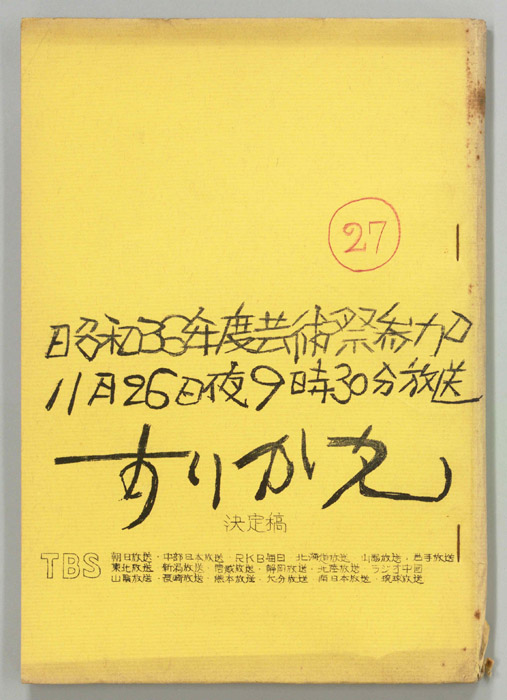 27
昭和36年度芸術祭参加
11月26日夜9時30分放送
すりかえ
決定稿
TBS 朝日放送・中部日本放送 RKB毎日 北海道放送 山陽放送・岩手放送
東北放送・新潟放送・信越放送・静岡放送・北陸放送・ラジオ中国
山陰放送・長崎放送・熊本放送・大分放送・南日本放送・琉球放送